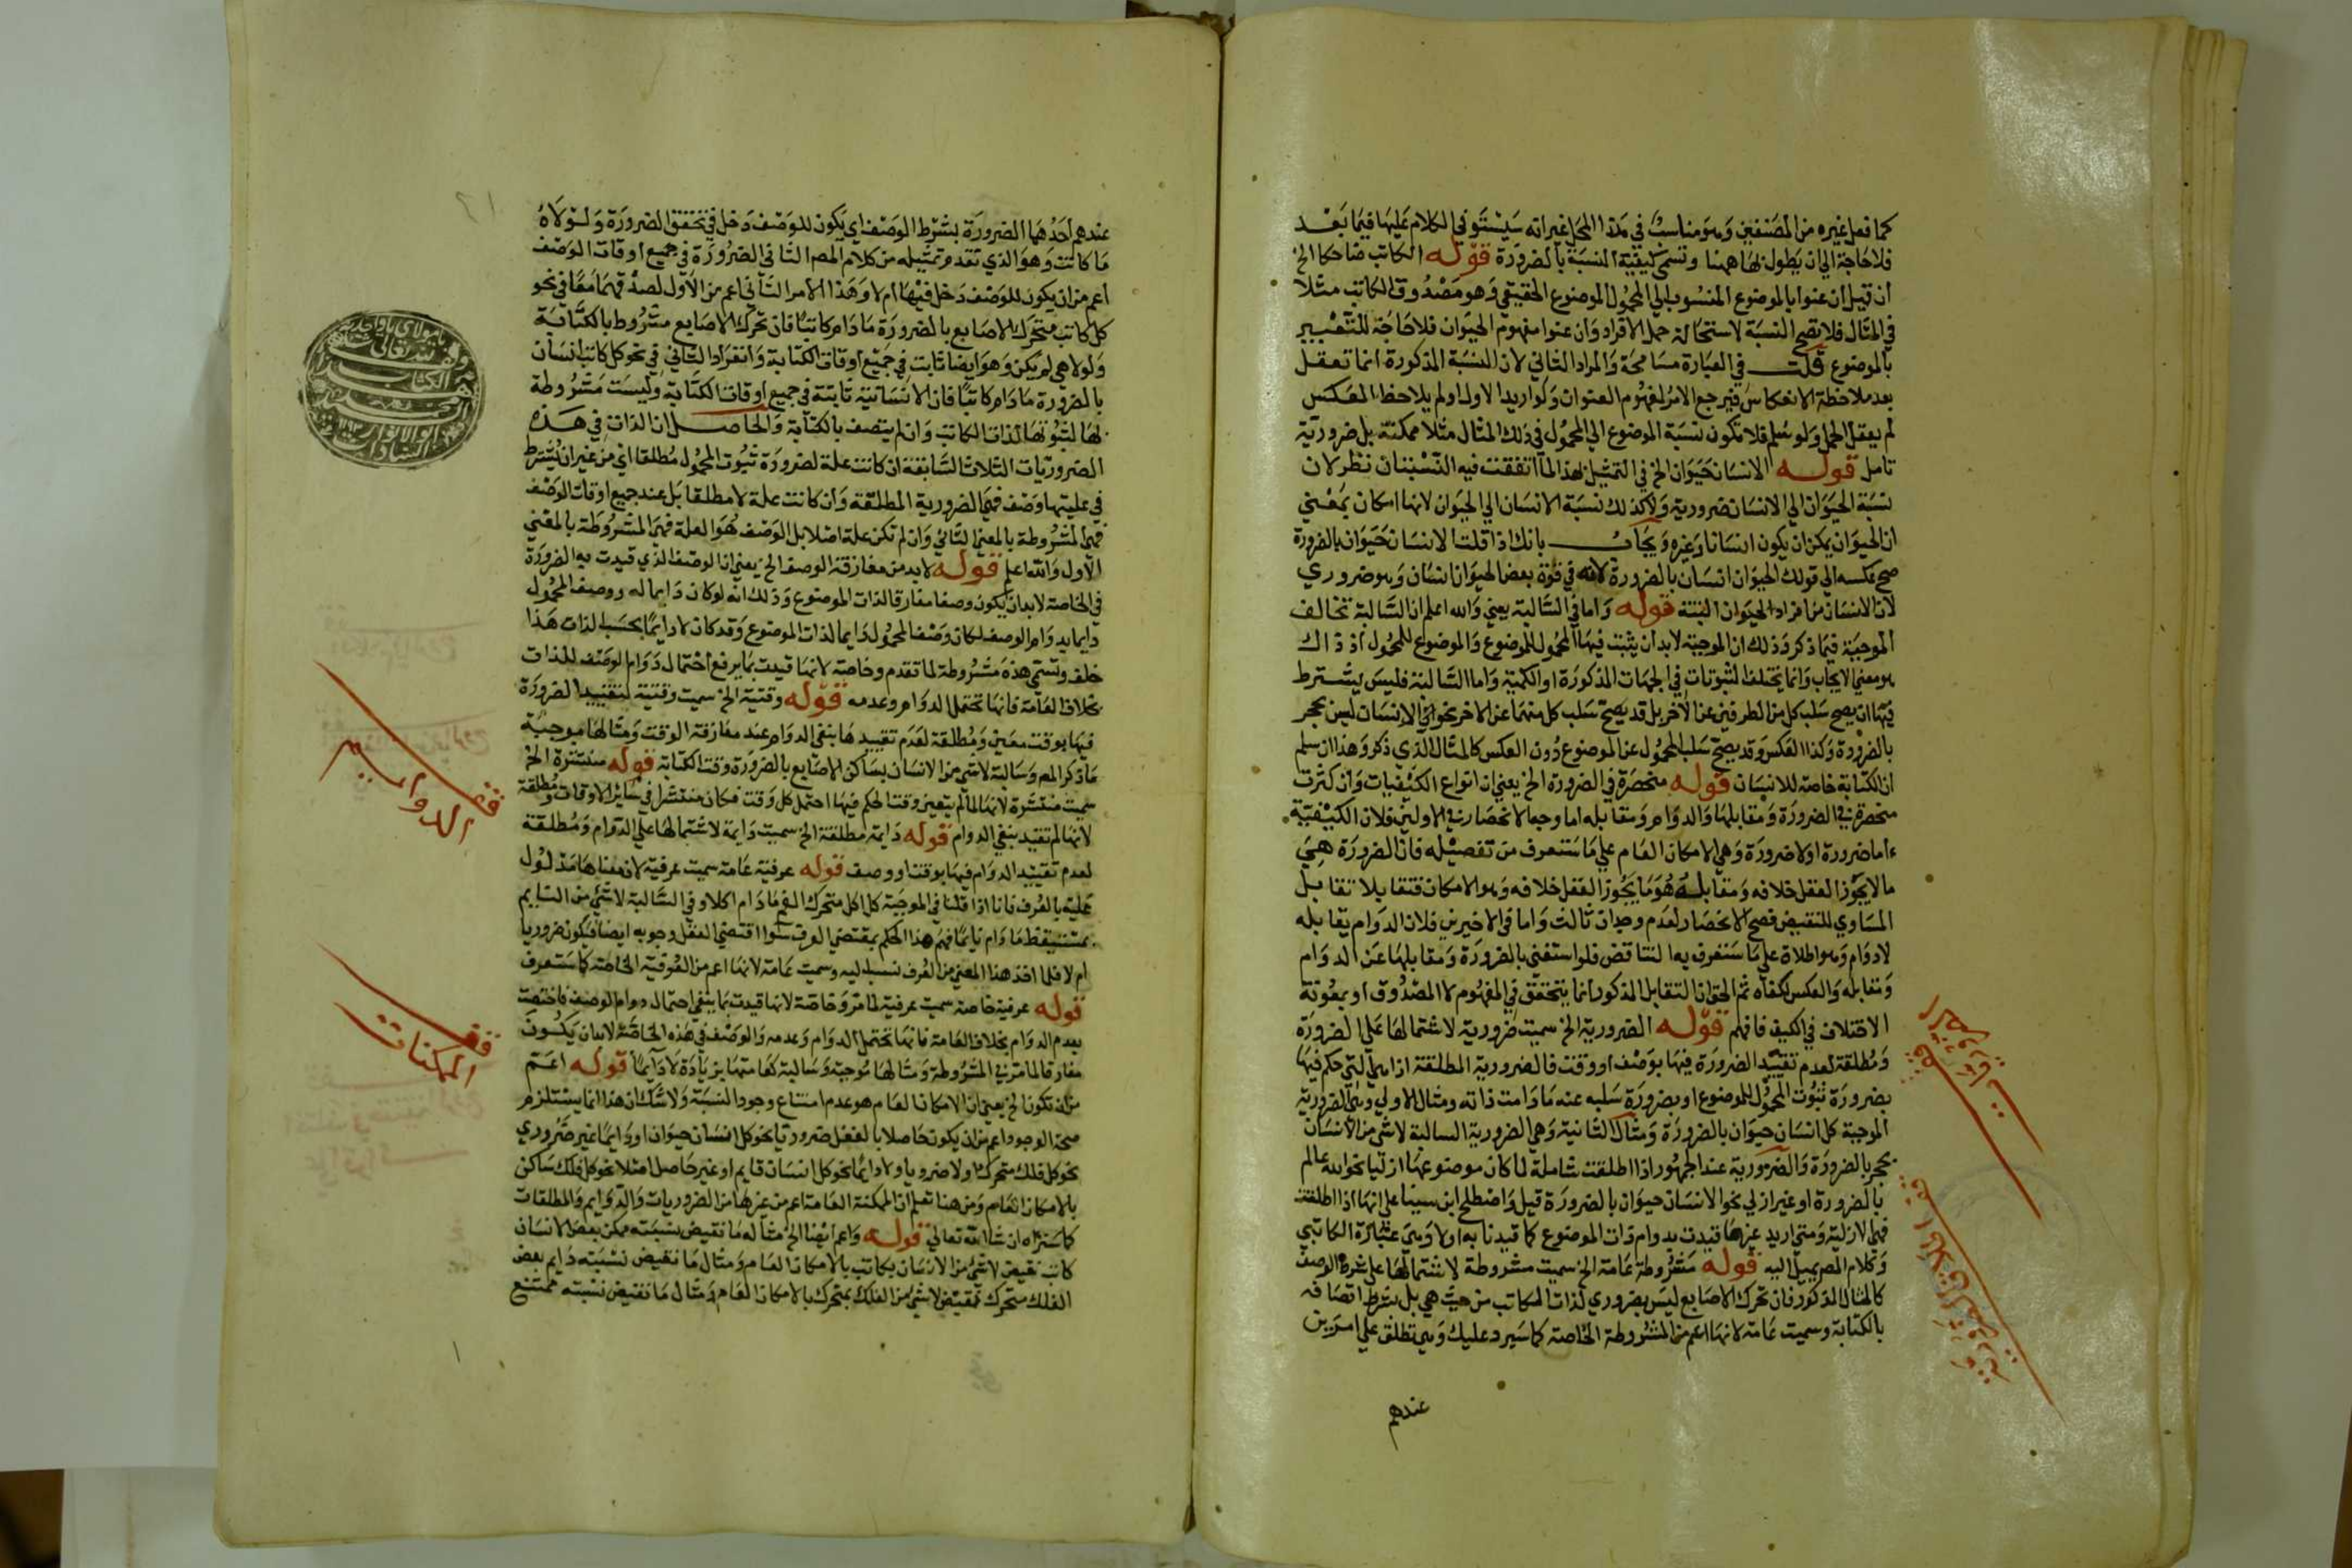 كما فعل غيره من المصنفين وهو مناسب في هذا المحل غير انه سيستوفي الكلام عليها فيما بعد
فلا حاجة الي ان يطول بها ههنا وتسمي كيفية النسبة بالضرورة قوله الكاتب ضاحكا الخ
ان قيل ان عنوا بالموضوع المنسوب الي المحمول الموضوع الحقيقي وهو مصدوق الكاتب مثلا
في المثال فلا تصح النسبة لاستحالة حمل الافراد وان عنوا مفهوم الحيوان فلا حاجة للتعبير
بالموضوع قلت في العبارة مسامحة والمراد الثاني لان النسبة المذكورة انما تعقل
بعد ملاحظة الانعكاس فيرجع الامر لمفهوم العنوان ولو اريد الاول او لم يلاحظ العكس
لم يعقل الحمل ولو سلم فلا تكون نسبة الموضوع الي المحمول في ذلك المثال مثلا ممكنة بل ضرورية
تامل قوله الانسان حيوان الخ في التمثيل بهذا لما اتفقت فيه النسبتان نظر لان
نسبة الحيوان الي الانسان ضرورية ولا كذلك نسبة الانسان الي الحيوان لانها امكان بمعني
ان الحيوان يمكن ان يكون انسانا وغيره ويجاب بانك اذا قلت الانسان حيوان بالضرورة
صح عكسه الي قولك الحيوان انسان بالضرورة لانه في قوة بعض الحيوان انسان وهو ضروري
لان الانسان من افراد الحيوان البتة قوله واما في السالبة يعني والله اعلم ان السالبة تخالف
الموجبة فيما ذكر وذلك ان الموجبة لابد ان يثبت فيها المحمول للموضوع والموضوع للمحمول اذ ذاك
هو معني الايجاب وانما يختلف الثبوتات في الجهات المذكورة او الكمية واما السالبة فليس يشترط
فيها ان يصح سلب كل من الطرفين عن الاخر بل قد يصح سلب كل منهما عن الاخر نحو الانسان ليس بحجر
بالضرورة وكذا العكس وقد يصح سلب المحمول عن الموضوع دون العكس كالمثال الذي ذكر وهذا ان سلم
ان الكتابة خاصة للانسان قوله منحصرة في الضرورة الخ يعني ان انواع الكيفيات وان كثرت
منحصرة في الضرورة ومقابلها والدوام ومقابله اما وجه الانحصار في الاولين فلان الكيفية
اما ضرورة او لا ضرورة وهي الامكان العام علي ما ستعرف من تفصيله فان الضرورة هي
ما لا يجوز العقل خلافه ومقابله هو ما يجوز العقل خلافه وهو الامكان فتقابلا تقابل
المساوي للنقيض فصح الانحصار لعدم وجدان ثالث واما في الاخيرين فلان الدوام يقابله
لا دوام وهو اطلاق علي ما ستعرف به التناقض فلو استغني بالضرورة ومقابلها عن الدوام
ومقابله والعكس لكفاه ثم الحق ان التقابل المذكور انما يتحقق في المفهوم لا المصدوق او بمعونة
الاختلاف في الكيف فافهم قوله الضرورية الخ سميت ضرورية لاشتمالها علي الضرورة
ومطلقة لعدم تقييد الضرورة فيها بوصف او وقت فالضرورية المطلقة اذا هي التي حكم فيها
بضرورة ثبوت المحمول للموضوع او بضرورة سلبه عنه ما دامت ذاته ومثال الاولي وهي الضرورية
الموجبة كل انسان حيوان بالضرورة ومثال الثانية وهي الضرورية السالبة لا شي من الانسان
بحجر بالضرورة والضرورية عند الجمهور اذا اطلقت شاملة لما كان موضوعها ازليا نحو الله عالم
بالضرورة او غير ازلي نحو الانسان حيوان بالضرورة قيل واصطلح ابن سينا علي انها اذا اطلقت
فهي الازلية ومتي اريد غيرها قيدت بدوام ذات الموضوع كما قيدنا به اولا وهي عبارة الكاتبي
وكلام المصر يميل اليه قوله مشروطة عامة الخ سميت مشروطة لاشتمالها علي شرط الوصف
كالمثال المذكور فان تحرك الاصابع ليس بضروري لذات الكاتب من حيث هي بل بشرط اتصافه
بالكتابة وسميت عامة لانها اعم من المشروطة الخاصة كما سيرد عليك وهي تطلق علي امرين
عندهم
عندهم احدهما الضرورة بشرط الوصف اي يكون للوصف دخل في تحقق الضرورة ولولاه
ما كانت وهو الذي تقدم تمثيله من كلام المص الثاني الضرورة في جميع اوقات الوصف
اعم من ان يكون للوصف دخل فيها ام لا وهذا الامر الثاني اعم من الاول لصدقهما معا في نحو
كل كاتب متحرك الاصابع بالضرورة ما دام كاتبا فان تحرك الاصابع مشروط بالكتابة
ولولا هي لم يكن وهو ايضا ثابت في جميع اوقات الكتابة وانفراد الثاني في نحو كل كاتب انسان
بالضرورة ما دام كاتبا فان الانسانية ثابتة في جميع اوقات الكتابة وليست مشروطة
بها لثبوتها لذات الكاتب وان لم يتصف بالكتابة والحاصل ان الذات في هذه
الضروريات الثلاث السابقة ان كانت علة لضرورة ثبوت المحمول مطلقا اي من غير ان يشترط
في عليتها وصف فهي الضرورية المطلقة وان كانت علة لا مطلقا بل عند جميع اوقات الوصف
فهي المشروطة بالمعني الثاني وان لم تكن علة اصلا بل الوصف هو العلة فهي المشروطة بالمعني
الاول والله اعلم قوله لا بد من مفارقة الوصف الخ يعني ان الوصف الذي قيدت به الضرورة
في الخاصة لابد ان يكون وصفا مفارقا لذات الموضوع وذلك انه لو كان دايما له ووصف المحمول
دايما بدوام الوصف لكان وصف المحمول دايما لذات الموضوع وقد كان لا دايما بحسب الذات هذا
خلف وتسمي هذه مشروطة لما تقدم وخاصة لانها قيدت بما يرفع احتمال دوام الوصف للذات
بخلاف العامة فانها تحتمل الدوام وعدمه قوله وقتية الخ سميت وقتية لتقييد الضرورة
فيها بوقت معين ومطلقة لعدم تقييدها بنفي الدوام عند مفارقة الوقت ومثالها موجبة
ما ذكر المص وسالبة لا شي من الانسان بساكن الاصابع بالضرورة وقت الكتابة قوله منتشرة الخ
سميت منتشرة لانها لما لم يتعين وقت الحكم فيها احتمل كل وقت فكان منتشرا في ساير الاوقات ومطلقة
لانها لم تقيد بنفي الدوام قوله دايمة مطلقة الخ سميت دايمة لاشتمالها علي الدوام ومطلقة
لعدم تقييد الدوام فيها بوقت او وصف قوله عرفية عامة سميت عرفية لان معناها مدلول
عليه بالعرف فانا اذا قلنا في الموجبة كل اكل متحرك الفم ما دام اكلا وفي السالبة لا شي من النايم
بمستيقظ ما دام نايما فهم هذا الحكم بمقتضي العرف سوا اقتضي العقل وجوبه ايضا فيكون ضروريا
ام لا فلما اخذ هذا المعني من العرف نسب اليه وسميت عامة لانها اعم من العرفية الخاصة كما ستعرف
قوله عرفية خاصة سميت عرفية لما مر وخاصة لانها قيدت بما ينفي احتمال دوام الوصف فاختصت
بعدم الدوام بخلاف العامة فانها تحتمل الدوام وعدمه والوصف في هذه الخاصة لابد ان يكون
مفارقا لما مر في المشروطة ومثالها موجبة وسالبة كعامتها بزيادة لا دايما قوله اعم
من ان تكون الخ يعني ان الامكان العام هو عدم امتناع وجود النسبة ولا شك ان هذا انما يستلزم
صحة الوجود اعم من ان يكون حاصلا بالفعل ضروريا نحو كل انسان حيوان او دايما غير ضروري
نحو كل فلك متحرك او لا ضروريا ولا دايما نحو كل انسان قايم او غير حاصل اصلا نحو كل فلك ساكن
بالامكان العام ومن هنا تعلم ان الممكنة العامة اعم من غيرها من الضروريات والدوايم والمطلقات
كما ستراه ان شا الله تعالي قوله واعم ايضا الخ مثاله ما نقيض نسبته ممكن بعض الانسان
كاتب نقيض لا شي من الانسان بكاتب بالامكان العام ومثال ما نقيض نسبته دايم بعض
الفلك متحرك نقيض لا شي من الفلك بمتحرك بالامكان العام ومثال ما نقيض نسبته ممتنع
قف
الدوايم
قف
الممكنات